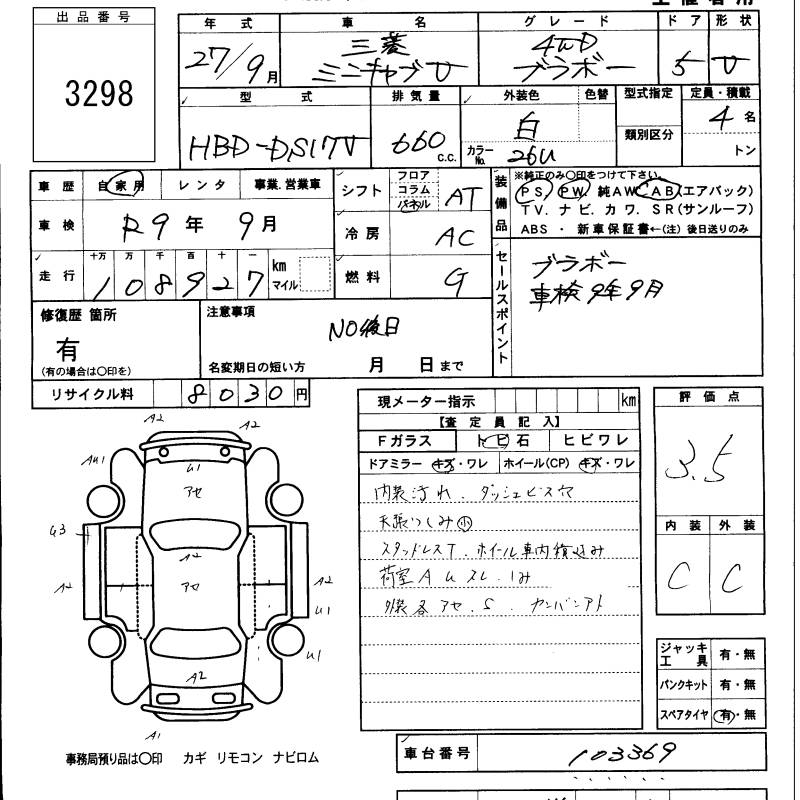 出品番号
3298
年式 車名 グレード ドア 形状
27/9月 三菱 ミニキャブV 4WD ブラボー 5 V
型式 排気量 外装色 色替 型式指定 定員・積載
HBD-DS17V 660 c.c. 白 類別区分 4名
カラーNo. 26U トン
車歴 自家用 レンタ 事業.営業車
車検 R9年9月
走行 十万 万 千 百 十 一 km マイル
108927
シフト フロア コラム パネル AT
冷房 AC
燃料 G
装備品 ※純正のみ○印をつけて下さい。
PS PW 純AW AB(エアバック)
TV.ナビ.カワ.SR(サンルーフ)
ABS・新車保証書←(注)後日送りのみ
セールスポイント
ブラボー
車検9年9月
修復歴 箇所
有
(有の場合は○印を)
注意事項
NO後日
名変期日の短い方 月 日まで
リサイクル料 8030円
現メーター指示 km
【査定員記入】
Fガラス トビ石 ヒビワレ
ドアミラー キズ・ワレ ホイール(CP) キズ・ワレ
内装汚れ.ダッシュビス穴
天張つしみ小
スタッドレスT.ホイール車内積込み
荷室AUスレ.しみ
外装各アセ.S.カンバンアト
評価点
3.5
内装 外装
C C
A2 A2
AU1 U1 アセ
G3
A2
A2 アセ A2
U1
U1
A2
A1
ジャッキ工具 有・無
パンクキット 有・無
スペアタイヤ 有・無
事務局預り品は○印 カギ リモコン ナビロム
車台番号 103369